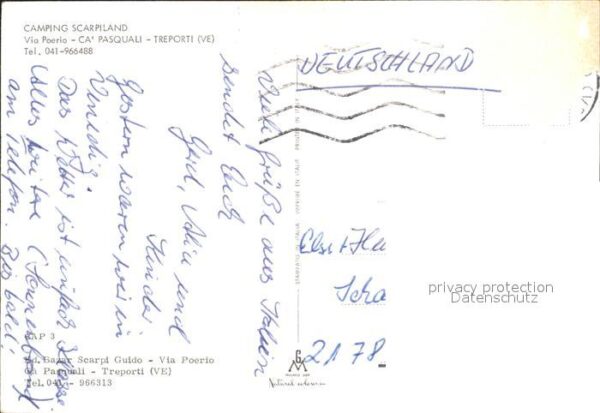 CAMPING SCARPILAND
Via Poerio - CA' PASQUALI - TREPORTI (VE)
Tel. 041-966488
DEUTSCHLAND
Viele Grüße aus Italien
sendet Euch
Gerd, und
Kinder
Gestern waren wir in
Venedig.
Das Wetter ist einfach Klasse
Alles weitere
am Telefon. Bis bald!
Else + 
2178
privacy protection
Datenschutz
CAP 3
Ed. Bazar Scarpi Guido - Via Poerio
Ca Pasquali - Treporti (VE)
Tel. 041 - 966313